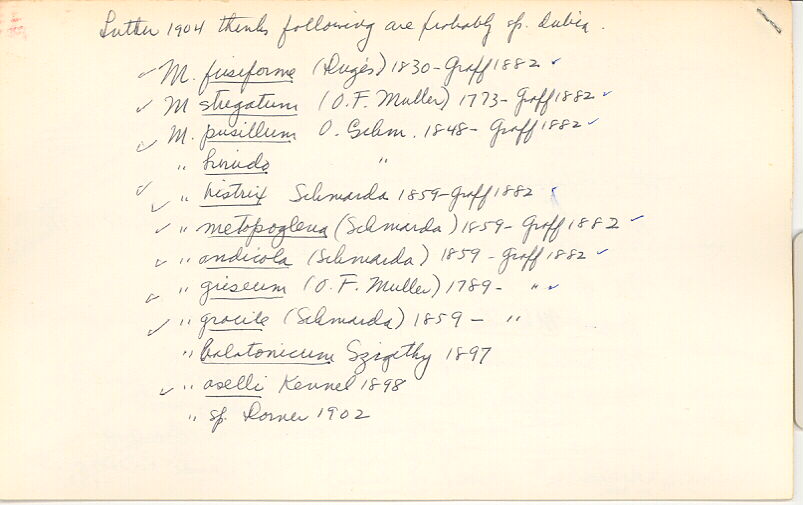 Luther 1904 thinks following are probably sp. dubia.
✓ M. fusiforme (Dugés) 1830-Graff 1882 ✓
✓ M strigatum (O.F. Muller) 1773-Graff 1882 ✓
✓ M. pusillum O. Schm. 1848-Graff 1882 ✓
" hirudo "
✓ " histrix Schmarda 1859-Graff 1882
✓ " metopoglena (Schmarda) 1859-Graff 1882 ✓
✓ " andicola (Schmarda) 1859-Graff 1882 ✓
✓ " griseum (O.F. Muller) 1789- " ✓
✓ " gracile (Schmarda) 1859- "
" balatonicum Szigethy 1897
✓ " aselli Kennel 1898
" sp. Dorner 1902